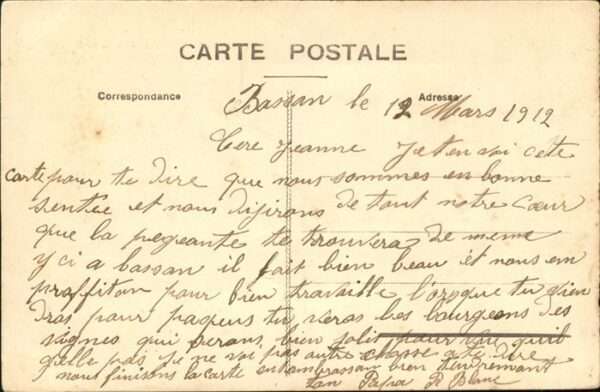 CARTE POSTALE
Correspondance
Adresse
Bassan le 12 Mars 1912
Cere Jeanne Je t'en voi cete
carte pour te dire que nous sommes en bonne
sentée et nous désirons de tout notre cœur
que la presante te trouvera de meme
yci a bassan il fait bien beau et nous em
proffiton pour bien travaille lorsque tu vien
dras pour paques tu veras les bourgeons des
vignes qui serons bien jolis pour vu quil
gelle pas je ne voi pas autre chosse a te dire
nous finisons la carte en tambrassan bien
ton Papa R Blanc